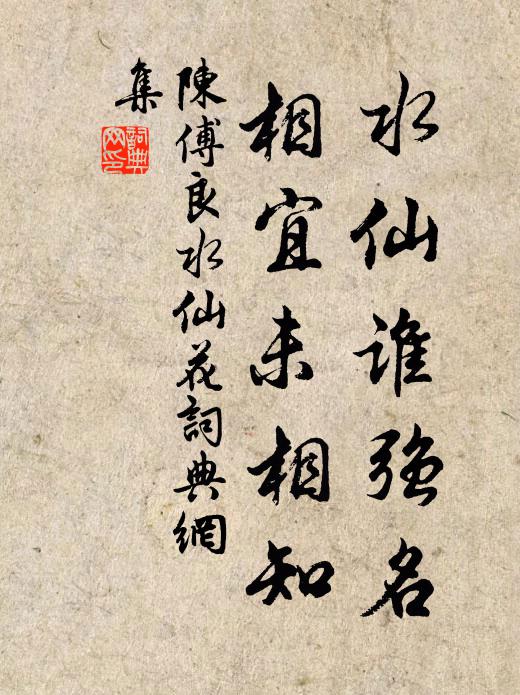 水仙誰強名
相宜未相知
陳傅良水仙花詞典網
集
詞典
网印